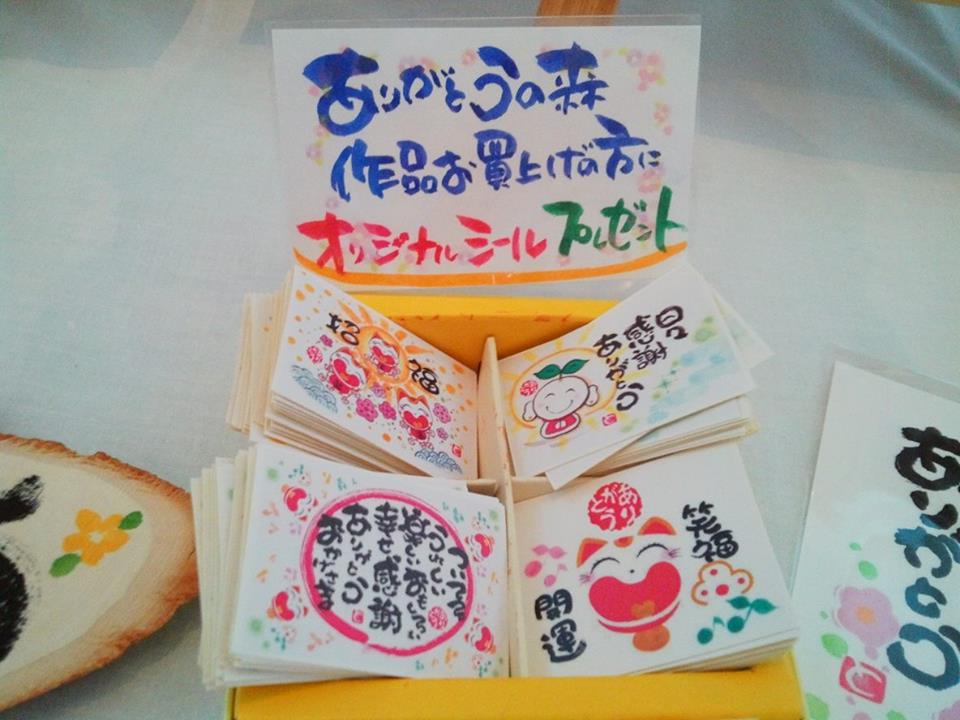 ありがとうの森
作品お買上げの方に
オリジナルシール プレゼント
招福
日々
感謝
ありがとう
ついてる
うれしい
楽しい おもしろい
幸せ 感謝
ありがとう
おかげさま
ありがとう
笑福
開運
ありがとう